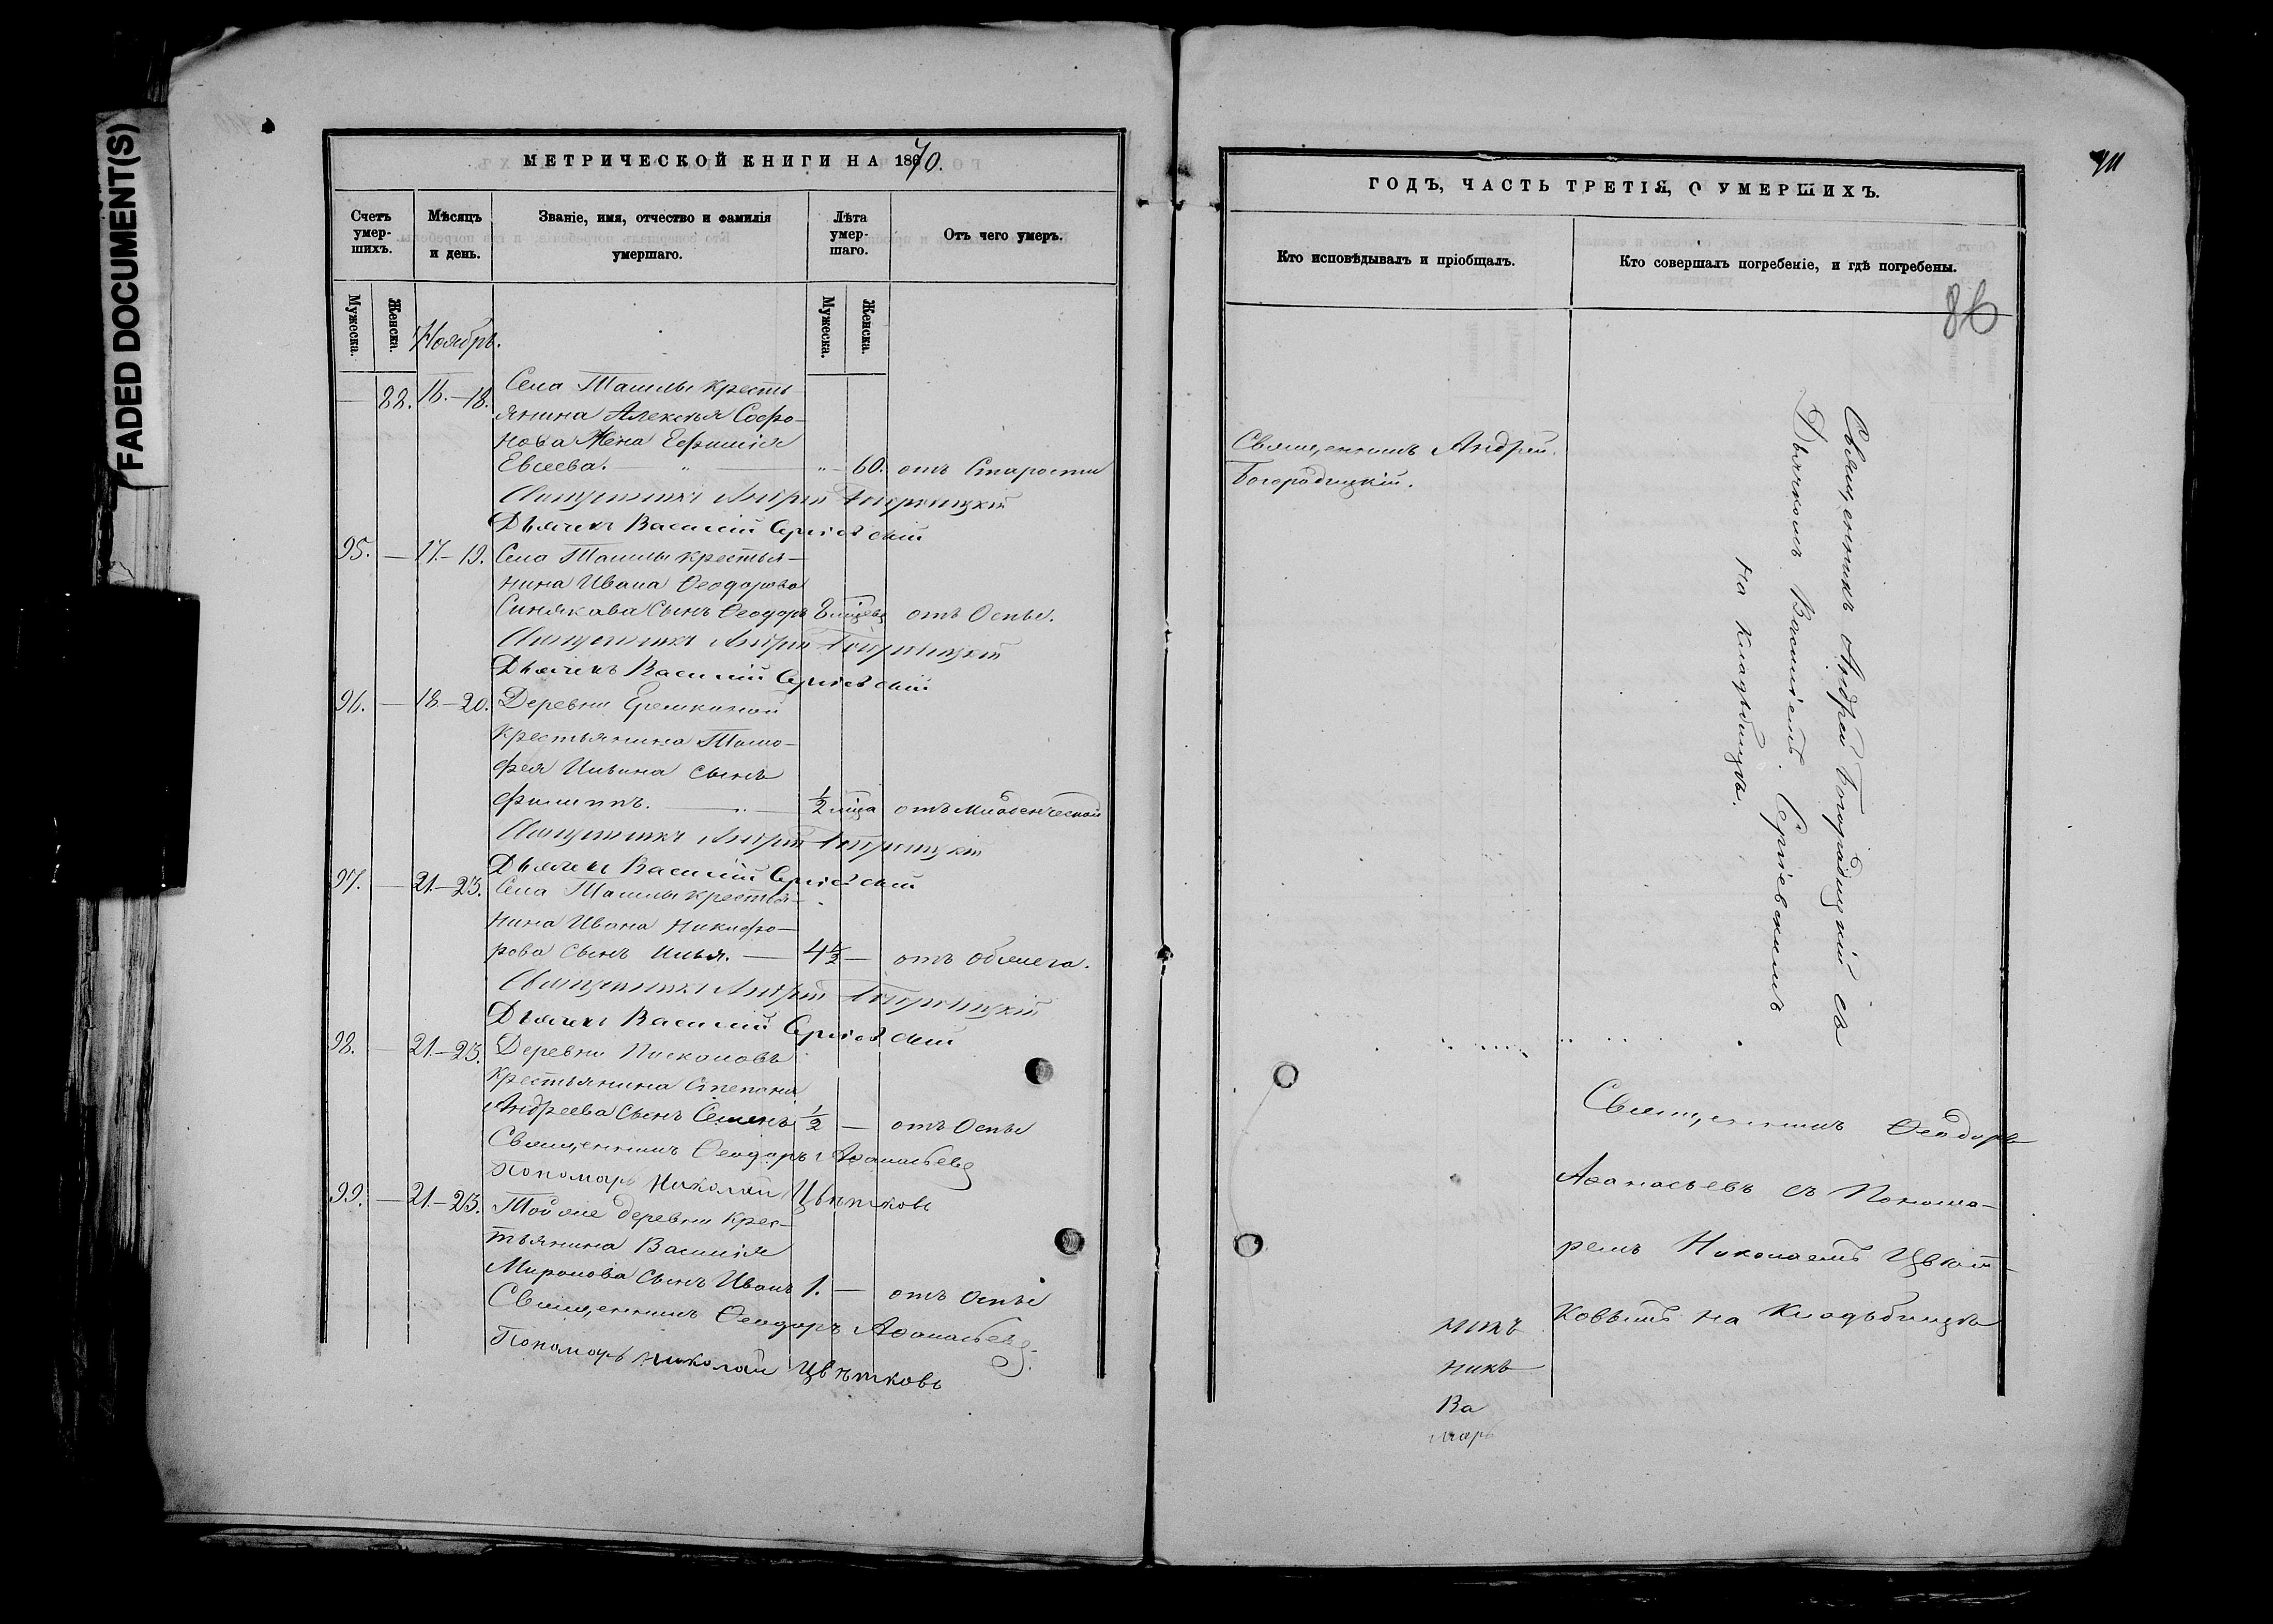 FADED DOCUMENT(S)
МЕТРИЧЕСКОЙ КНИГИ НА 1870.
Счетъ умер-шихъ.
Мѣсяцъ и день.
Званіе, имя, отчество и фамилія умершаго.
Лѣта умер-шаго.
Отъ чего умеръ.
Мужеска.
Женска.
Мужеска.
Женска.
Ноябрь.
88. 16.-18. Села Ташлы кресть-
янина Алексѣя Софро-
нова жена Ефимія
Евсеева. 60. отъ Старости
Священникъ Андрей Богородицкій
Дьячекъ Василій Сергіевскій
95. — 17.-19. Села Ташлы крестья-
нина Ивана Ѳеодорова
Синякава Сынъ Ѳеодоръ 8 мѣсяц отъ Оспы.
Священникъ Андрей Богородицкій
Дьячекъ Василій Сергіевскій
96. — 18-20. Деревни Еремкиной
крестьянина Тимо-
фея Ильина сынъ
Филиппъ. 1/2 мѣца отъ Младенческой
Священникъ Андрей Богородицкій
Дьячекъ Василій Сергіевскій
97. — 21-23. Села Ташлы крестья-
нина Ивана Никифо-
рова сынъ Илья. — 4 1/2 — отъ
Священникъ Андрей Богородицкій
Дьячекъ Василій Сергіевскій
98. — 21-23. Деревни Пискаловъ
крестьянина Степана
Андреева сынъ Семенъ 1/2 — отъ Оспы
Священникъ Ѳеодоръ Аѳанасьевъ
Пономарь Николай Цвѣтковъ
99. — 21-23. Той же деревни крес-
тьянина Василія
Миронова сынъ Иванъ 1. — отъ Оспы
Священникъ Ѳеодоръ Аѳанасьевъ
Пономарь Николай Цвѣтковъ
ГОДЪ, ЧАСТЬ ТРЕТІЯ, О УМЕРШИХЪ.
Кто исповѣдывалъ и пріобщалъ.
Кто совершалъ погребеніе, и гдѣ погребены.
86
Священникъ Андрей
Богородицкій.
Священникъ Андрей Богородицкій съ
Дьячкомъ Василіемъ Сергіевскимъ
на кладьбищѣ.
Священникъ Ѳеодоръ
Аѳанасьевъ съ Понома-
ремъ Николаемъ Цвѣт-
ковымъ на Кладьбищѣ
никъ
Ва
марь